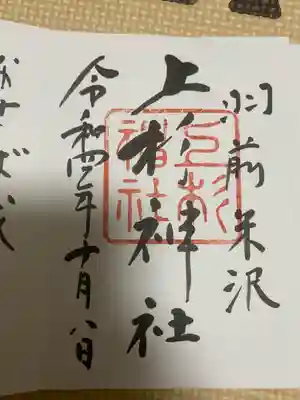 羽前米沢
上杉神社
上杉
神社
令和四年十月八日
なせば成